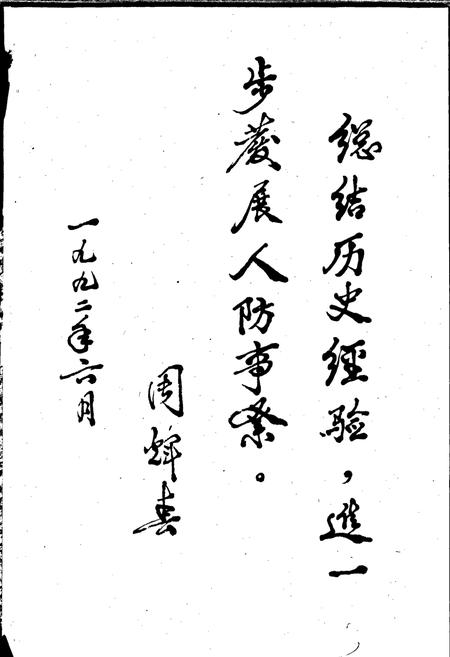 総结历史經验，進一
步發展人防事業。
周輝春
一九九二年六月